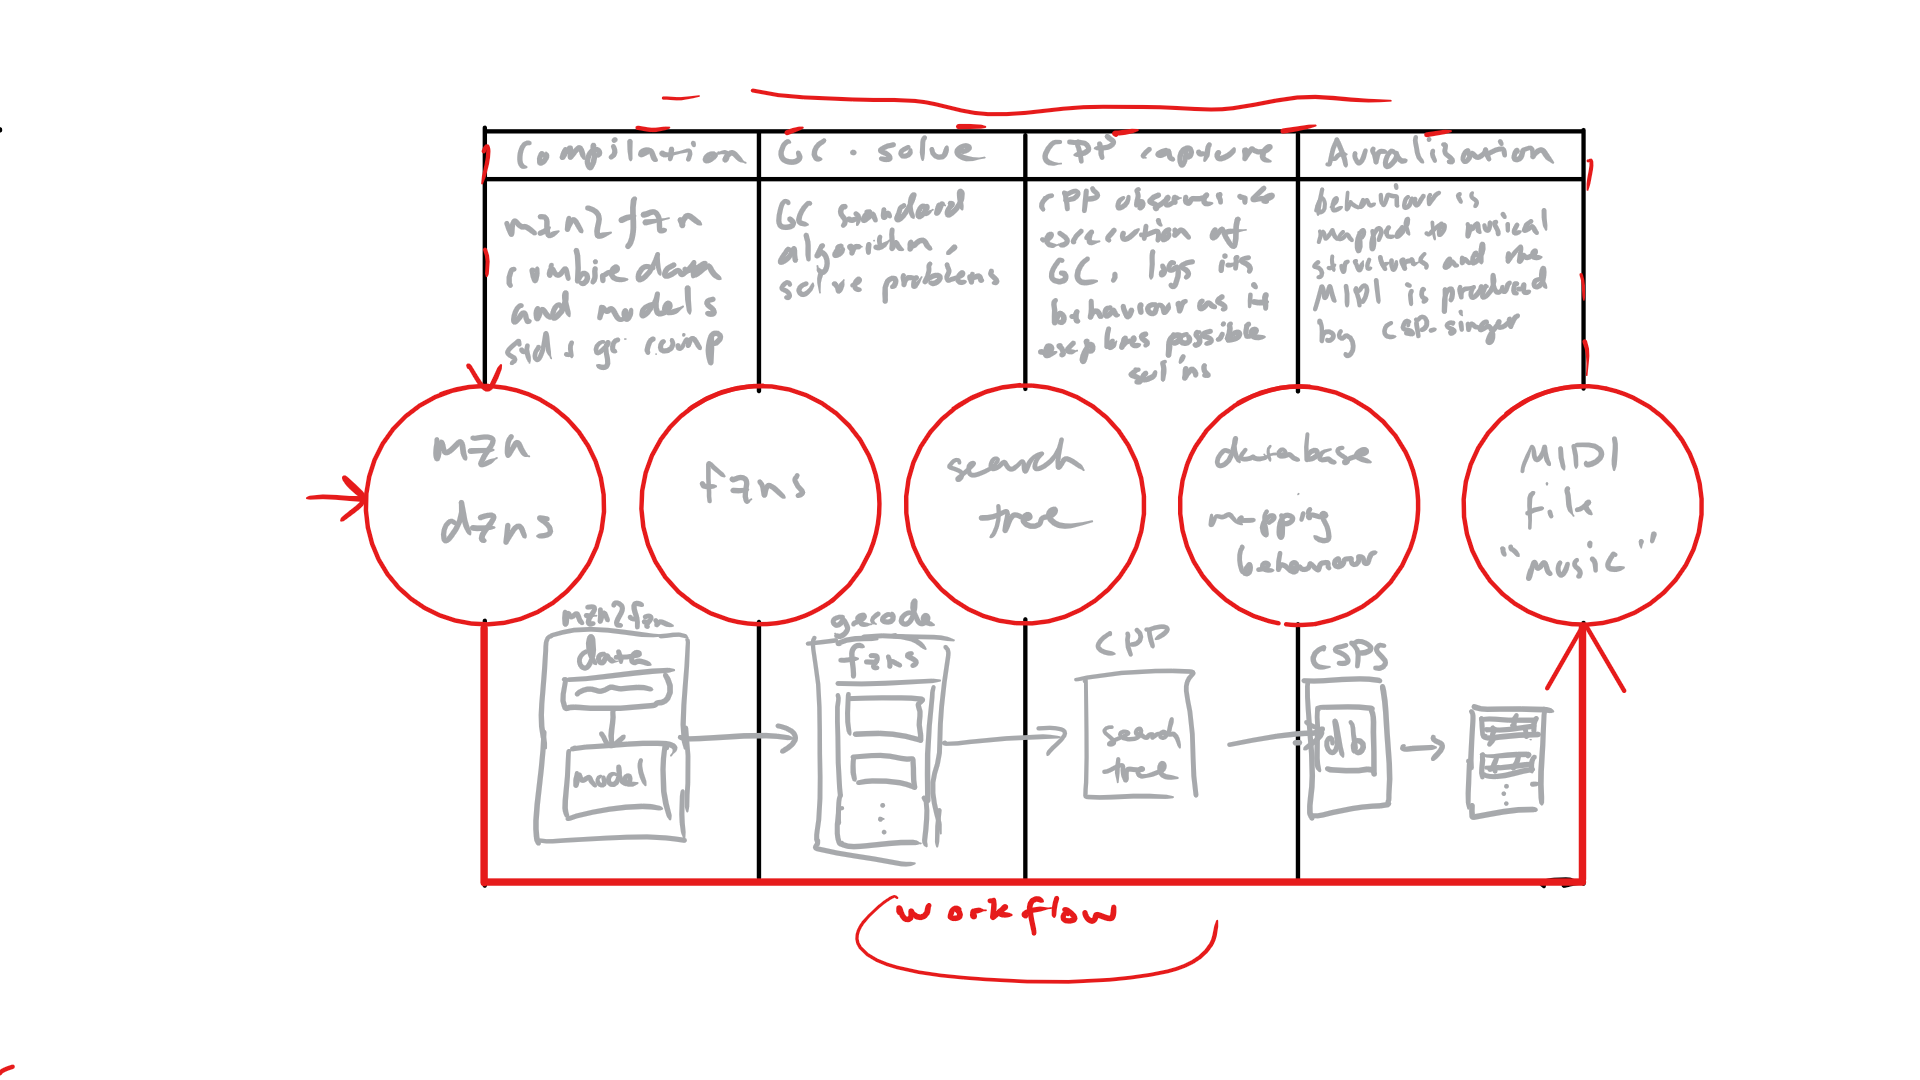 Compilation
GC-solve
CPP capture
Auralisation
mzn2fzn
combine data
and models
std + gc comp
GC standard
algorithm,
solve problems
CPP observes the
execution of
GC, logs its
behaviour as it
explores possible
sol'ns
behaviour is
mapped to musical
structures and the
MIDI is produced
by CSP-singer
mzn
dzns
fzns
search
tree
database
mapping
behaviour
MIDI
file
"music"
mzn2fzn
data
model
gecode
fzns
CPP
search
tree
CSPS
db
workflow